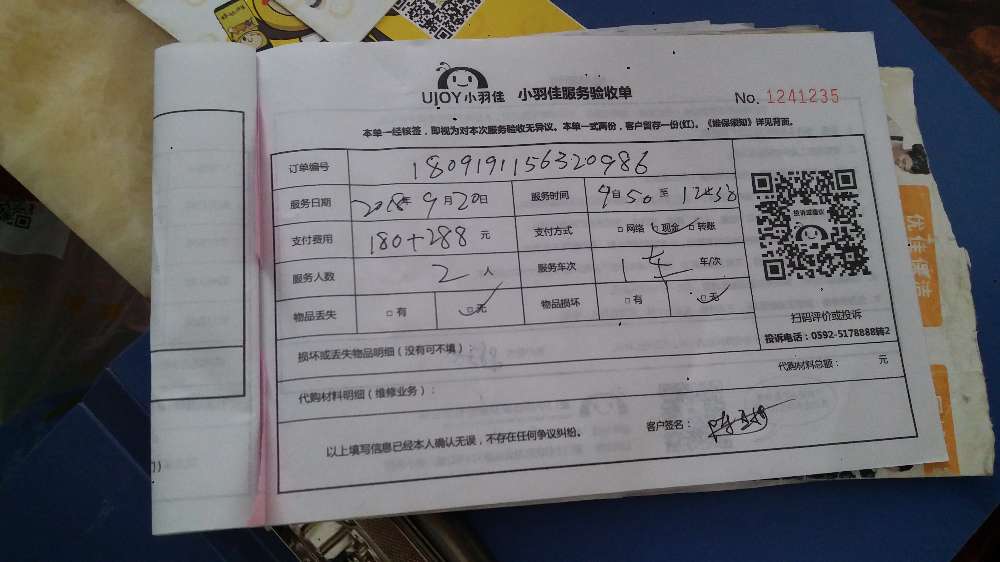 UJOY小羽佳 小羽佳服务验收单 No. 1241235
本单一经核签,即视为对本次服务验收无异议。本单一式两份,客户留存一份(红)。《维保须知》详见背面。
订单编号 1809191156320986
服务日期 2018年9月20日 服务时间 9自50至12
支付费用 180+288元 支付方式 □网络 □现金 □转账
服务人数 2人 服务车次 1车 车/次
物品丢失 □有 □无 物品损坏 □有 □无
投诉或建议
扫码评价或投诉
投诉电话:0592-5178888转2
损坏或丢失物品明细(没有可不填):
代购材料总额: 元
代购材料明细(维修业务):
客户签名:
以上填写信息已经本人确认无误,不存在任何争议纠纷。
优佳保洁